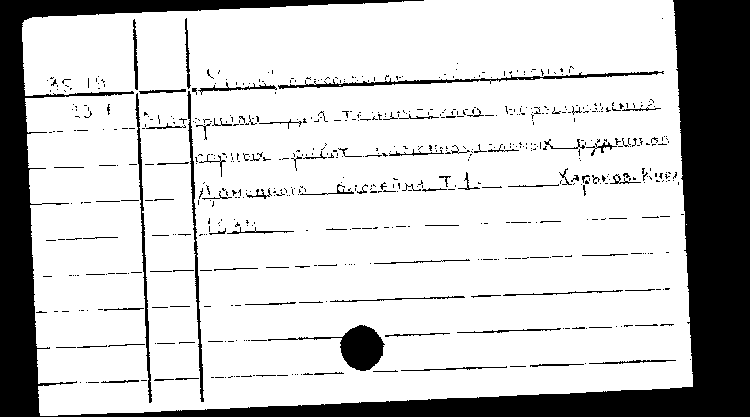 35 19
„Уголь", всесоюзное объединение.
23 1
Материалы для технического нормирования
горных работ каменноугольных рудников
Донецкого бассейна Т.1. Харьков-Киев,